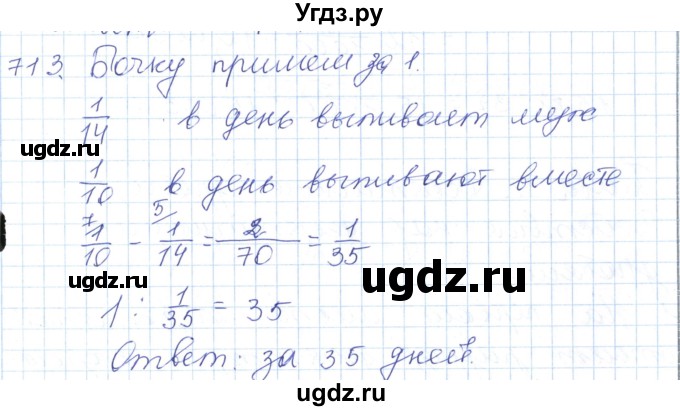 Угдз.ру
713. Бочку примем за 1.
1/14 в день выпивает муж
ugdz.ru
ugdz.ru
1/10 в день выпивают вместе
ugdz.ru
7 5/
1/10 - 1/14 = 2/70 = 1/35
ugdz.ru
ugdz.ru
1 : 1/35 = 35
Ответ: за 35 дней.
ugdz.ru
ugdz.ru